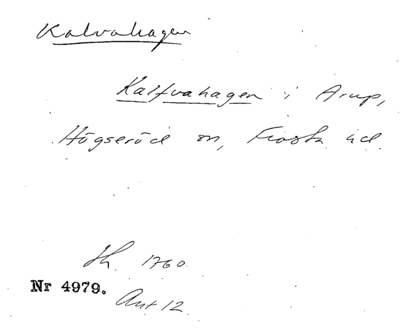 Kalvahagen
Kalfvahagen i Arup,
Högseröd sn, Frosta hd.
Sk. 1760
Nr 4979.
Akt 12